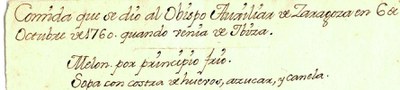 Comida que se dio al Obispo Auxiliar de Zaragoza en 6 de
Octubre de 1760. quando venia de Ibiza.
Melon por principio frio.
Sopa con costra de huevos, azucar, y canela.